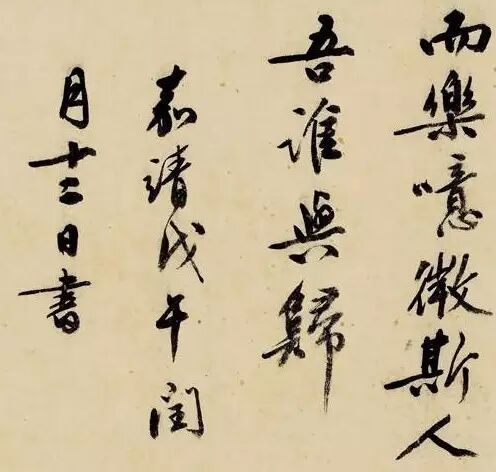 而樂噫微斯人
吾誰與歸
嘉靖戊午閏
月十二日書